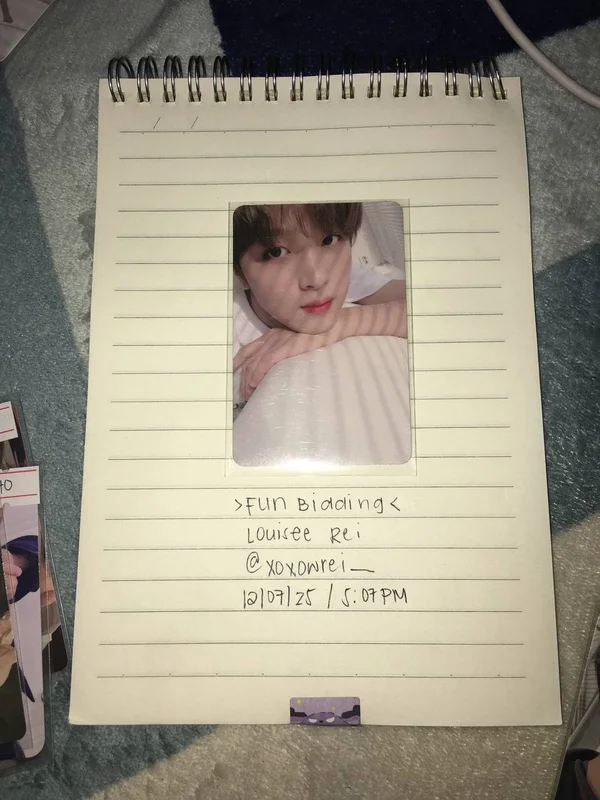 / /
>FUN Bidding<
Louisee Rei
@xoxowrei_
12/07/25 / 5:07 PM